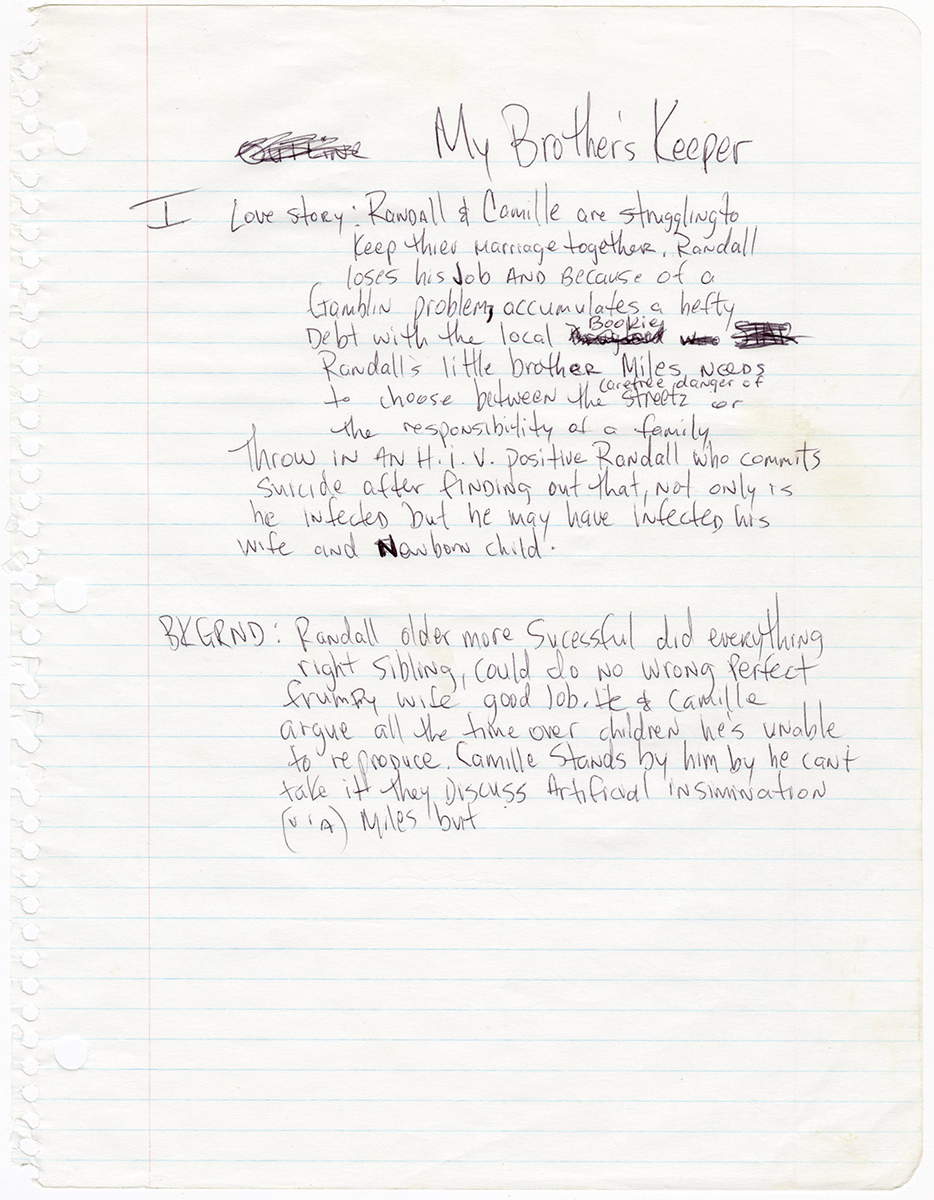 OUTLINE My Brother's Keeper
I Love story: Randall & Camille are struggling to
keep thier marriage together. Randall
loses his Job AND Because of a
Gamblin problem, accumulates a hefty
Debt with the local Bookie
Randall's little brother Miles needs
to choose between the carefree danger of streetz or
the responsibility of a family
Throw IN AN H.I.V. positive Randall who commits
suicide after finding out that, not only is
he infected but he may have infected his
wife and Newborn child.
BKGRND: Randall older more Sucessful did everything
right sibling, could do no wrong Perfect
frumpy wife good Job. He & Camille
argue all the time over children he's unable
to reproduce. Camille Stands by him by he cant
take it they Discuss Artificial insimination
(VIA) Miles but